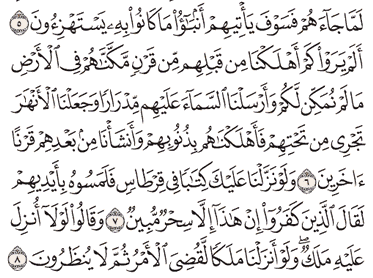 لَمَّا جَآءَهُمْ فَسَوْفَ يَأْتِيهِمْ أَنۢبَـٰٓؤُا۟ مَا كَانُوا۟ بِهِۦ يَسْتَهْزِءُونَ ٥
أَلَمْ يَرَوْا۟ كَمْ أَهْلَكْنَا مِن قَبْلِهِم مِّن قَرْنٍ مَّكَّنَّـٰهُمْ فِى ٱلْأَرْضِ
مَا لَمْ نُمَكِّن لَّكُمْ وَأَرْسَلْنَا ٱلسَّمَآءَ عَلَيْهِم مِّدْرَارًا وَجَعَلْنَا ٱلْأَنْهَـٰرَ
تَجْرِى مِن تَحْتِهِمْ فَأَهْلَكْنَـٰهُم بِذُنُوبِهِمْ وَأَنشَأْنَا مِنۢ بَعْدِهِمْ قَرْنًا
ءَاخَرِينَ ٦ وَلَوْ نَزَّلْنَا عَلَيْكَ كِتَـٰبًا فِى قِرْطَاسٍ فَلَمَسُوهُ بِأَيْدِيهِمْ
لَقَالَ ٱلَّذِينَ كَفَرُوٓا۟ إِنْ هَـٰذَآ إِلَّا سِحْرٌ مُّبِينٌ ٧ وَقَالُوا۟ لَوْلَآ أُنزِلَ
عَلَيْهِ مَلَكٌ ۖ وَلَوْ أَنزَلْنَا مَلَكًا لَّقُضِىَ ٱلْأَمْرُ ثُمَّ لَا يُنظَرُونَ ٨